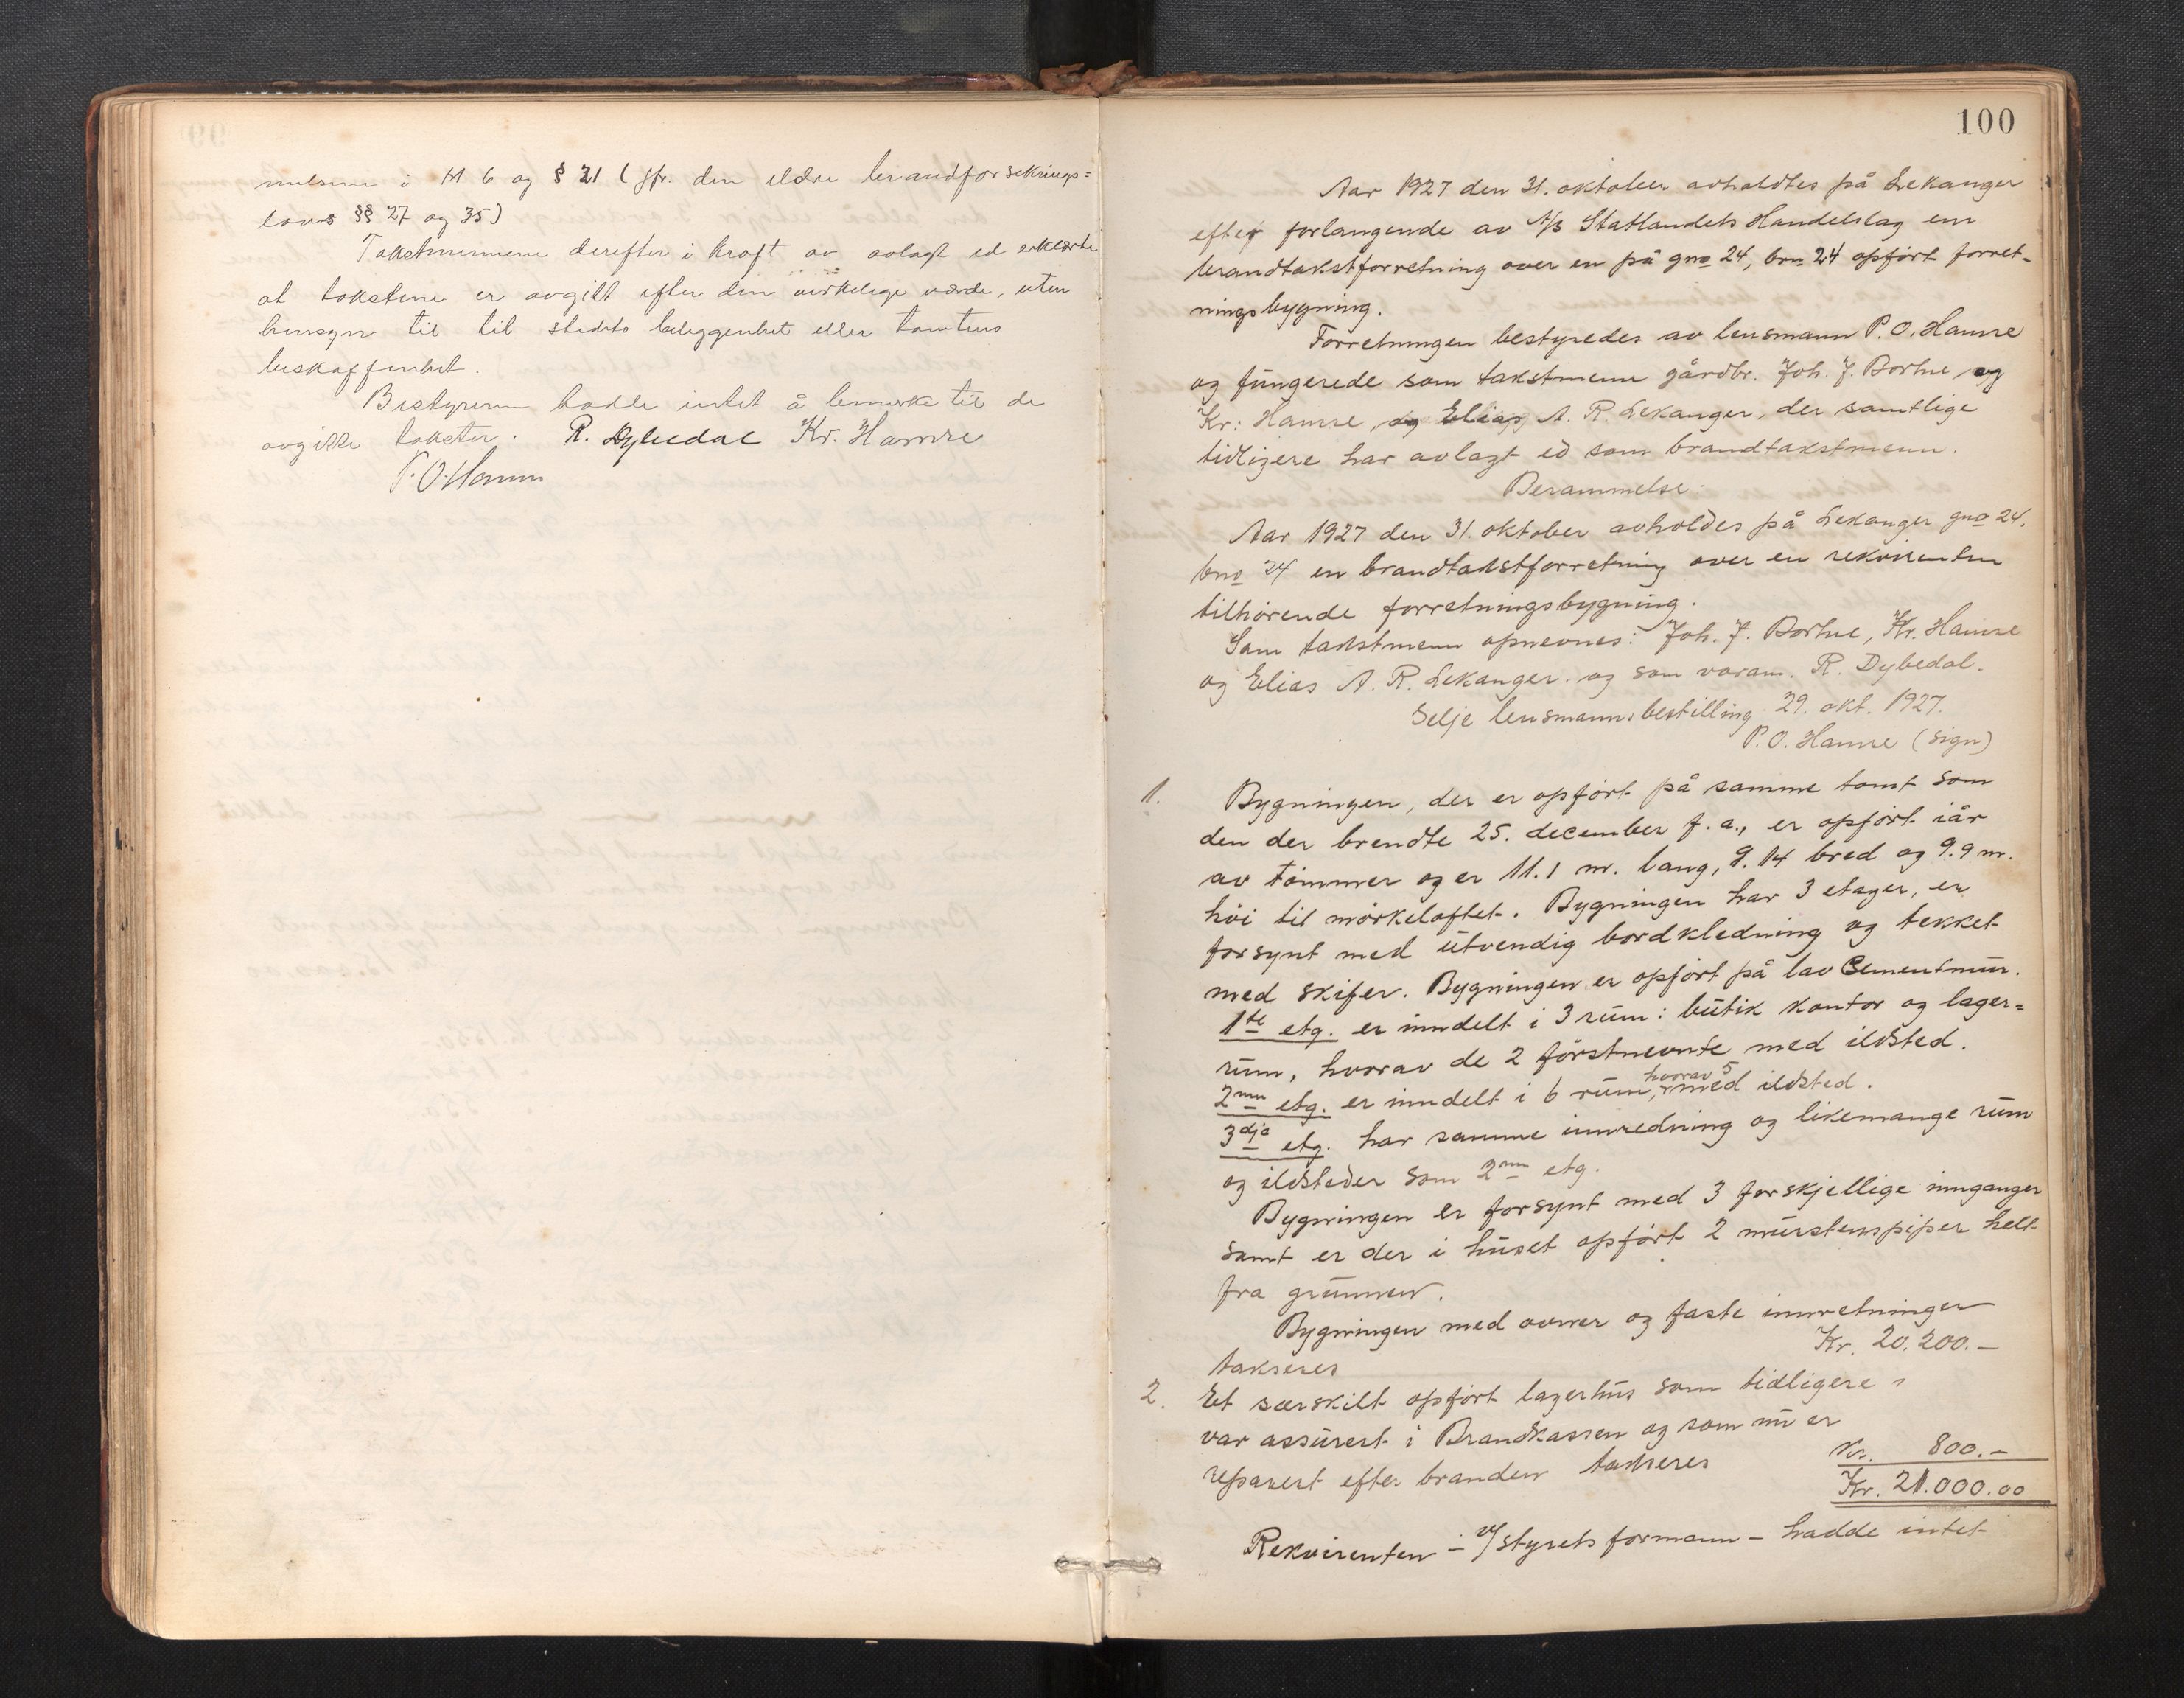 nelsene i M 6 og § 21 (jfr. den eldre brandforsekrings=
lovs §§ 27 og 35)
Takstmennene derefter i kraft av avlagt ed erklærte
at takstene er avgitt efter den virkelige værde, uten
hensyn til til stedets beleggenhet eller tomtens
beskaffenhet.
Bestyreren hadde intet å bemerke til de
avgitte takster. R. Dybedal Kr. Hamre
P. O. Hamre
100
Aar 1927 den 31. oktober avholdtes på Lekanger
efter forlangende av A/S Statlandets Handelslag en
brandtakstforretning over en på gno 24, bno 24 opført forret-
ningsbygning.
Forretningen bestyredes av lensmann P. O. Hamre
og fungerede som takstmenn gårdbr. Joh. J. Borhne, og
Kr. Hamre, og Elias A. R. Lekanger, der samtlige
tidligere har avlagt ed som brandtakstmenn.
Berammelse:
Aar 1927 den 31. oktober avholdes på Lekanger gno 24,
bno 24 en brandtakstforretning over en rekvirenten
tilhørende forretningsbygning.
Som takstmenn opnevnes: Joh. J. Borhne, Kr. Hamre
og Elias A. R. Lekanger. og som varam. R. Dybedal.
Selje lensmannsbestilling 29. okt. 1927.
P. O. Hamre (sign)
1. Bygningen, der er opført på samme tomt som
den der brendte 25. december f. a., er opført iår
av tømmer og er 11.1 m. lang, 9.14 bred og 9.9 m.
høi til mørkeloftet. Bygningen har 3 etager, er
forsynt med utvendig bordkledning og tekket
med skifer. Bygningen er opført på lav Cementmur.
1te etg. er inndelt i 3 rum: butik kontor og lager=
rum, hvorav de 2 førstnevnte med ildsted.
2nen etg. er inndelt i 6 rum, hvorav 5 med ildsted.
3dje etg. har samme innredning og likemange rum
og ildsteder som 2nen etg.
Bygningen er forsynt med 3 forskjellige innganger
samt er der i huset opført 2 murstenspiper helt
fra grunnen.
Bygningen med ovner og faste innretninger
takseres Kr. 20.200.-
2. Et særskilt opført lagerhus som tidligere
var assurert i Brandkassen og som nu er
reparert efter branden takseres Kr. 800.-
Kr. 21.000.00
Rekvirenten - v/styrets formann - hadde intet